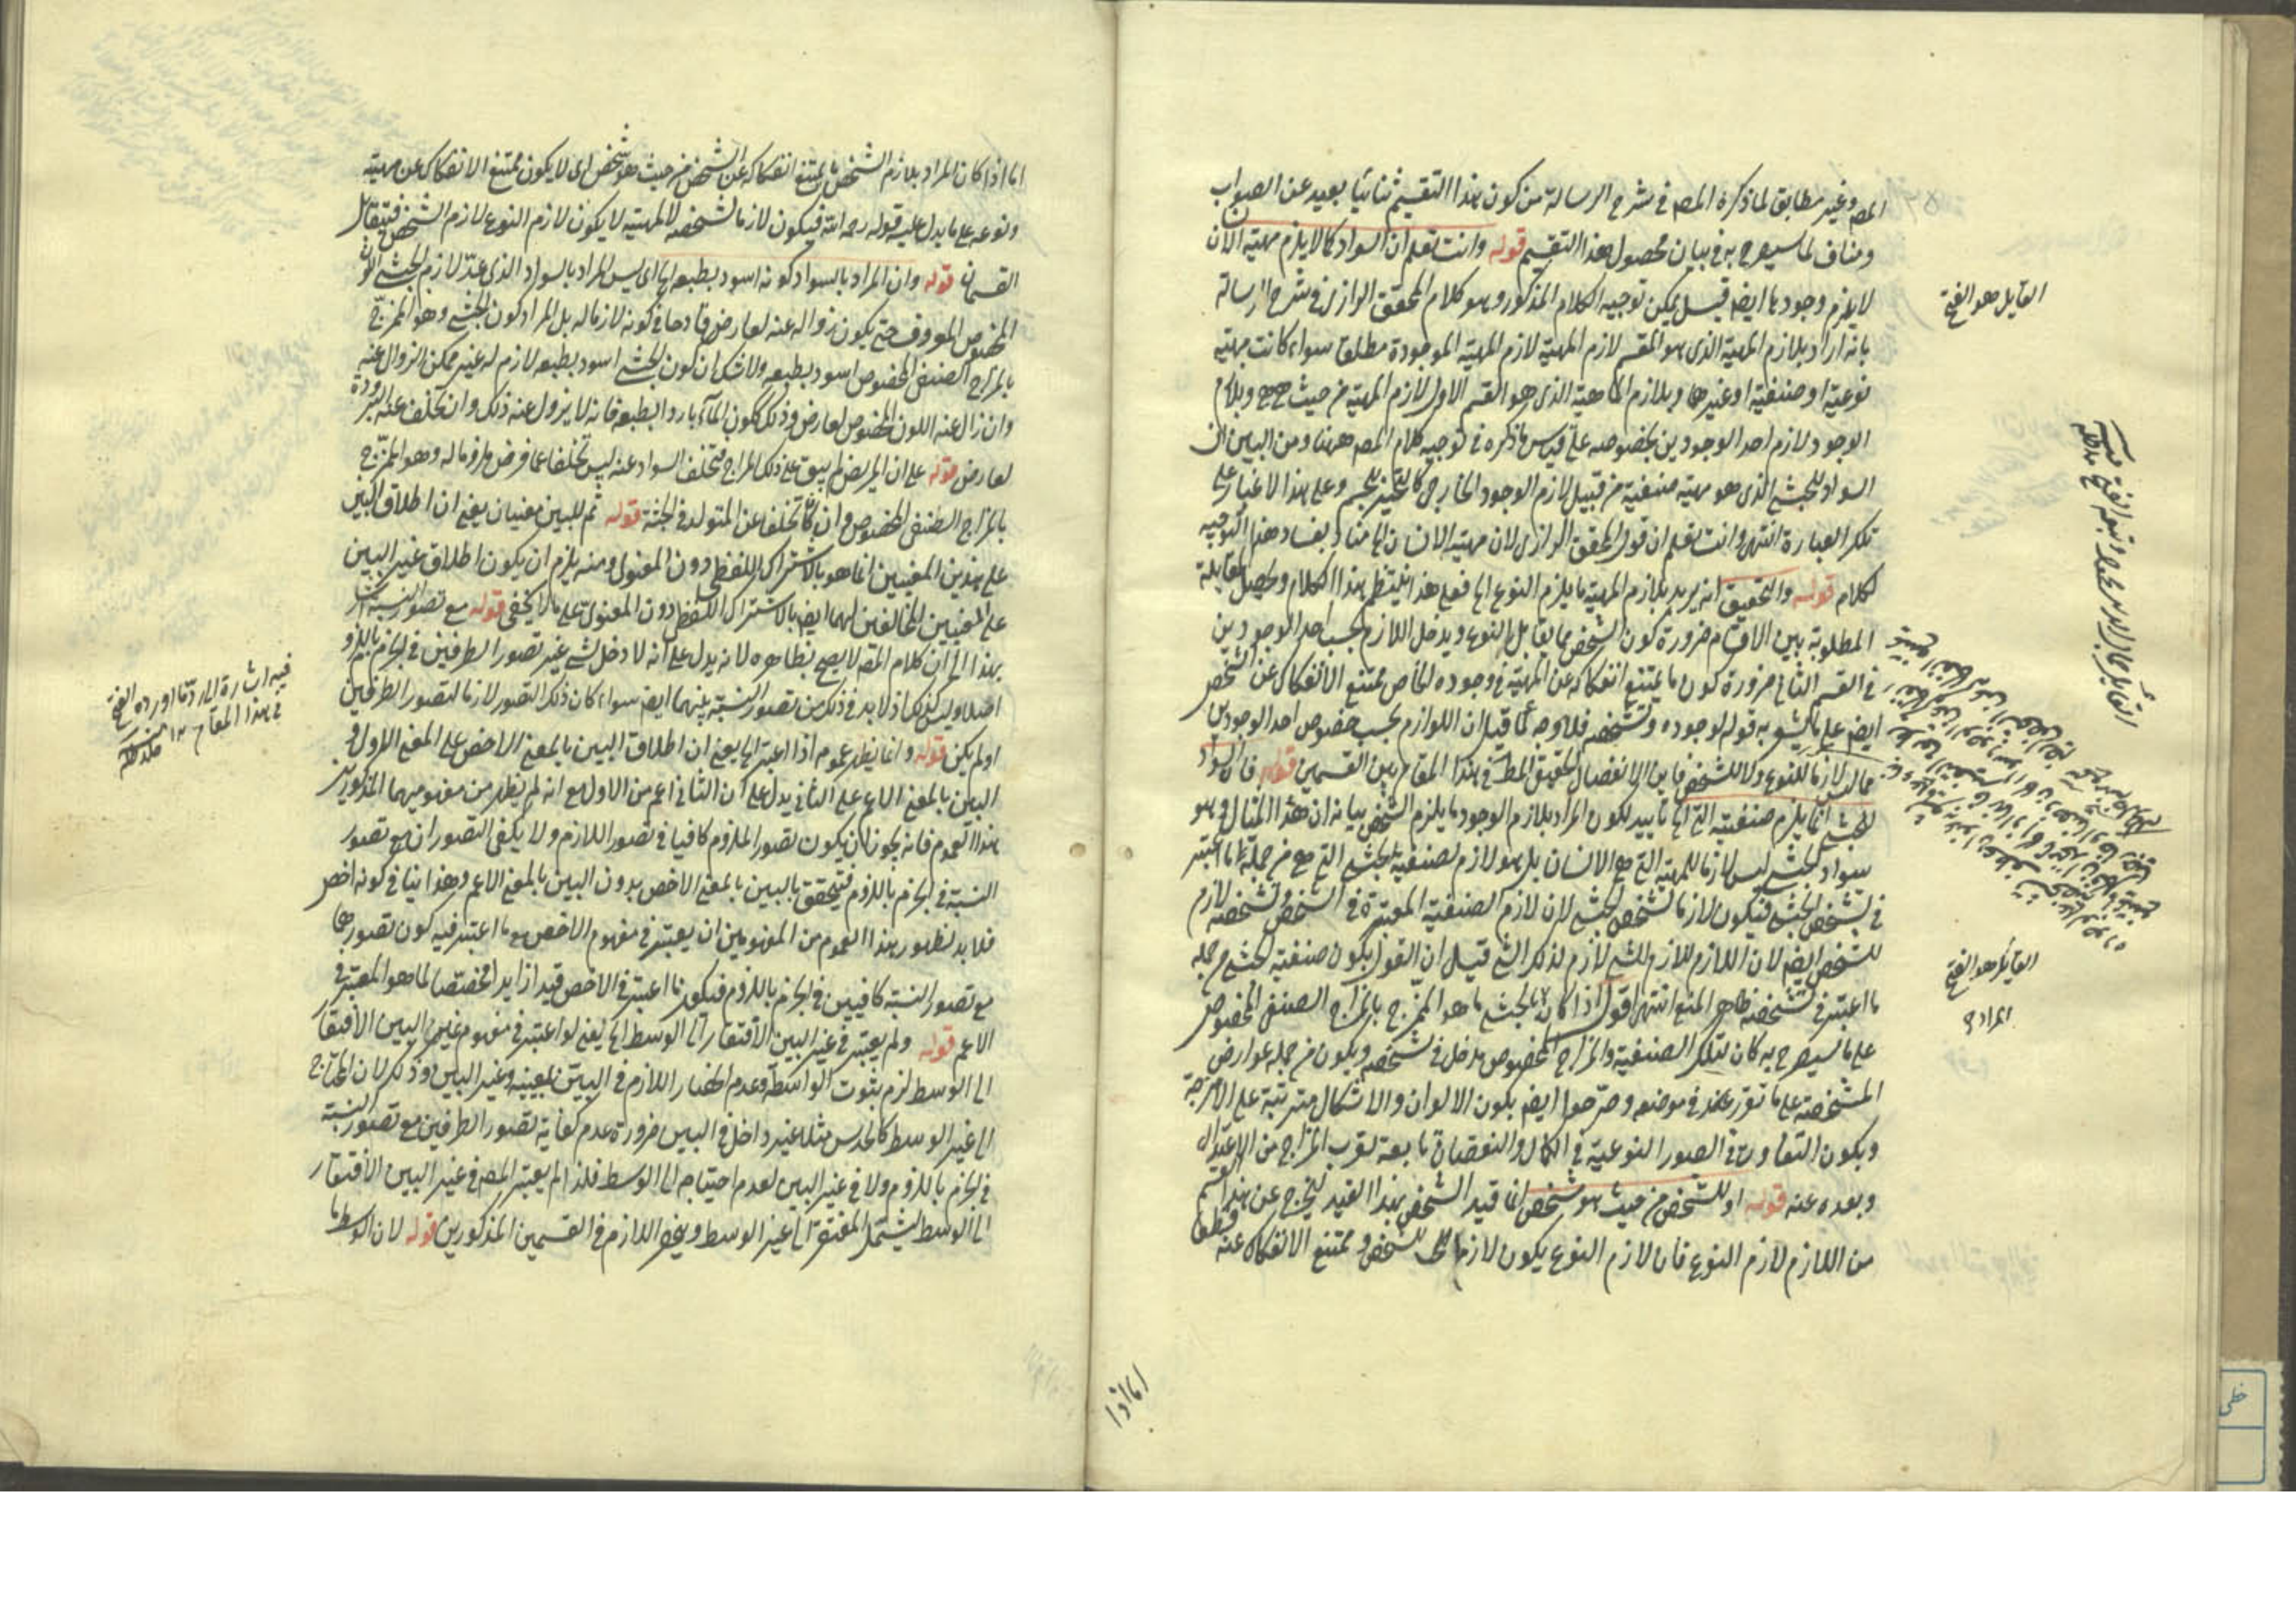 المص وغير مطابق لما ذكره المص في شرح الرسالة من كون هذا التقسيم ثنائيا بعيد عن الصواب
ومناف لما سيصرح به في بيان محصول هذا التقسيم قوله وانت تعلم ان السواد كما لا يلزم مهية الانسان
لا يلزم وجودها ايضا قيل يمكن توجيه الكلام المذكور وهو كلام المحقق الرازي في شرح الرسالة
بانه اراد بلازم المهية الذي هو المقسم لازم المهية لازم المهية الموجودة مطلقا سواء كانت مهية
نوعية او صنفية او غيرهما وبلازم الماهية الذي هو القسم الاول لازم المهية من حيث هي هي وبلازم
الوجود لازم احد الوجودين بخصوصه على قياس ما ذكره في توجيه كلام المص ههنا ومن البين ان
السواد للحبشي الذي هو مهية صنفية من قبيل لازم الوجود الخارجي كالتحيز للجسم وعلى هذا لا غبار على
تلك العبارة انتهى وانت تعلم ان قول المحقق الرازي لان مهية الانسان الخ مناد بفساد هذا التوجيه
لكلامه قوله والتحقيق انه يريد بلازم المهية ما يلزم النوع الخ فعلى هذا ينتظم هذا الكلام ويحصل المقابلة
المطلوبة بين الاقسام ضرورة كون الشخص مما يقابل النوع ويدخل اللازم بحسب احد الوجودين
في القسم الثاني ضرورة كون ما يمتنع انفكاكه عن المهية في وجوده الخاص ممتنع الانفكاك عن الشخص
ايضا على ما يشير به قوله لوجوده وتشخصه فلا وجه لما قيل ان اللوازم بحسب خصوص احد الوجودين
مما ليس لازما للنوع ولا للشخص فاين الانفصال الحقيقي المط في هذا المقام بين القسمين قوله فان السواد
للحبشي انما يلزم صنفيته الخ تأييد لكون المراد بلازم الوجود ما يلزم الشخص بيانه ان هذا المثال وهو
سواد الحبشي ليس لازما للمهية التي هي الانسان بل هو لازم لصنفية الحبشي التي هي من جملة ما اعتبر
في تشخص الحبشي فيكون لازما لشخص الحبشي لان لازم الصنفية المعتبرة في الشخص وتشخصه لازم
للشخص ايضا لان اللازم للازم للشي لازم لذلك الشي قيل ان القول بكون صنفية الحبشي من جملة
ما اعتبر في تشخصه ظاهر المنع انتهى اقول اذا كان الحبشي ما هو الممتزج بالمزاج الصنفي المخصوص
على ما سيصرح به كان لتلك الصنفية والمزاج المخصوص مدخل في تشخصه ويكون من جملة عوارض
المشخصة على ما تقرر عندهم في موضعه وصرحوا ايضا بكون الالوان والاشكال مترتبة على الامزجة
وبكون التفاوت في الصور النوعية في الكمال والنقصان تابعة لقرب المزاج من الاعتدال
وبعده عنه قوله او للشخص من حيث هو شخص انما قيد الشخص بهذا القيد ليخرج عن هذا القسم
من اللازم لازم النوع فان لازم النوع يكون لازما للشخص وممتنع الانفكاك عنه قطعا
القايل هو الفتح
القايل هو الفتح
المراد
اما اذا
اما اذا كان المراد بلازم الشخص ما يمتنع انفكاكه عن الشخص من حيث هو شخص اى لا يكون ممتنع الانفكاك عن مهيته
ونوعه على ما يدل عليه قوله رحمه الله فيكون لازما لشخصه لا لمهيته لا يكون لازم النوع لازم الشخص فيتقابل
القسمان قوله وان المراد بالسواد كونه اسود بطبعه الخ اى ليس المراد بالسواد الذي عد لازم الحبشي اللون
المخصوص المعروف حتى يكون زواله عنه لعارض قادحا في كونه لازما له بل المراد كون الحبشي وهو الممتزج
بالمزاج الصنفي المخصوص اسود بطبعه ولا شك ان كون الحبشي اسود بطبعه لازم له غير ممكن الزوال عنه
وان زال عنه اللون المخصوص لعارض وذلك ككون الماء باردا بالطبع فانه لا يزول عنه ذلك وان تخلف عنه البرودة
لعارض قوله على ان المريض لم يبق على ذلك المزاج فتخلف السواد عنه ليس تخلفا عما فرض ملزوما له وهو الممتزج
بالمزاج الصنفي المخصوص وان كان تخلفا عن المتولد في الحبشة قوله ثم للبين معنيان يعني ان اطلاق البين
على هذين المعنيين انما هو بالاشتراك اللفظي دون المعنوي ومنه يلزم ان يكون اطلاق غير البين
على المعنيين المخالفين لهما ايضا بالاشتراك اللفظي دون المعنوي على ما لا يخفى قوله مع تصور النسبة اشار
بهذا الى ان كلام المص لا يصح بظاهره لانه يدل على انه لا دخل لشي غير تصور الطرفين في الجزم باللزوم
اصلا وليس كذلك اذ لا بد في ذلك من تصور النسبة بينهما ايضا سواء كان ذلك التصور لازما لتصور الطرفين
او لم يكن قوله وانما يظهر عموم اذا اعتبر الخ يعني ان اطلاق البين بالمعنى الاخص على المعنى الاول و
البين بالمعنى الاعم على الثاني يدل على ان الثاني اعم من الاول مع انه لم يظهر من مفهوميهما المذكورين
هذا العموم فانه يجوز ان يكون تصور الملزوم كافيا في تصور اللازم ولا يكفي التصوران مع تصور
النسبة في الجزم باللزوم فيتحقق البين بالمعنى الاخص بدون البين بالمعنى الاعم وهذا ينافي كونه اخص
فلا بد لظهور هذا العموم من المفهومين ان يعتبر في مفهوم الاخص مع ما اعتبر فيه كون تصورهما
مع تصور النسبة كافيين في الجزم باللزوم فيكون ما اعتبر في الاخص قيدا زايدا مختصا لما هو المعتبر في
الاعم قوله ولم يعتبر في غير البين الافتقار الى الوسط الخ يعني لو اعتبر في مفهوم غير البين الافتقار
الى الوسط لزم ثبوت الواسطة وعدم انحصار اللازم في البين بمعنييه وغير البين وذلك لان المحتاج
الى غير الوسط كالحدس مثلا غير داخل في البين ضرورة عدم كفاية تصور الطرفين مع تصور النسبة
في الجزم باللزوم ولا في غير البين لعدم احتياجه الى الوسط فلذا لم يعتبر المص في غير البين الافتقار
الى الوسط ليشتمل المفتقر الى غير الوسط وينحصر اللازم في القسمين المذكورين قوله لان الوسط ما
فيه اشارة الى رد ما اورده الفتح
في هذا المقام